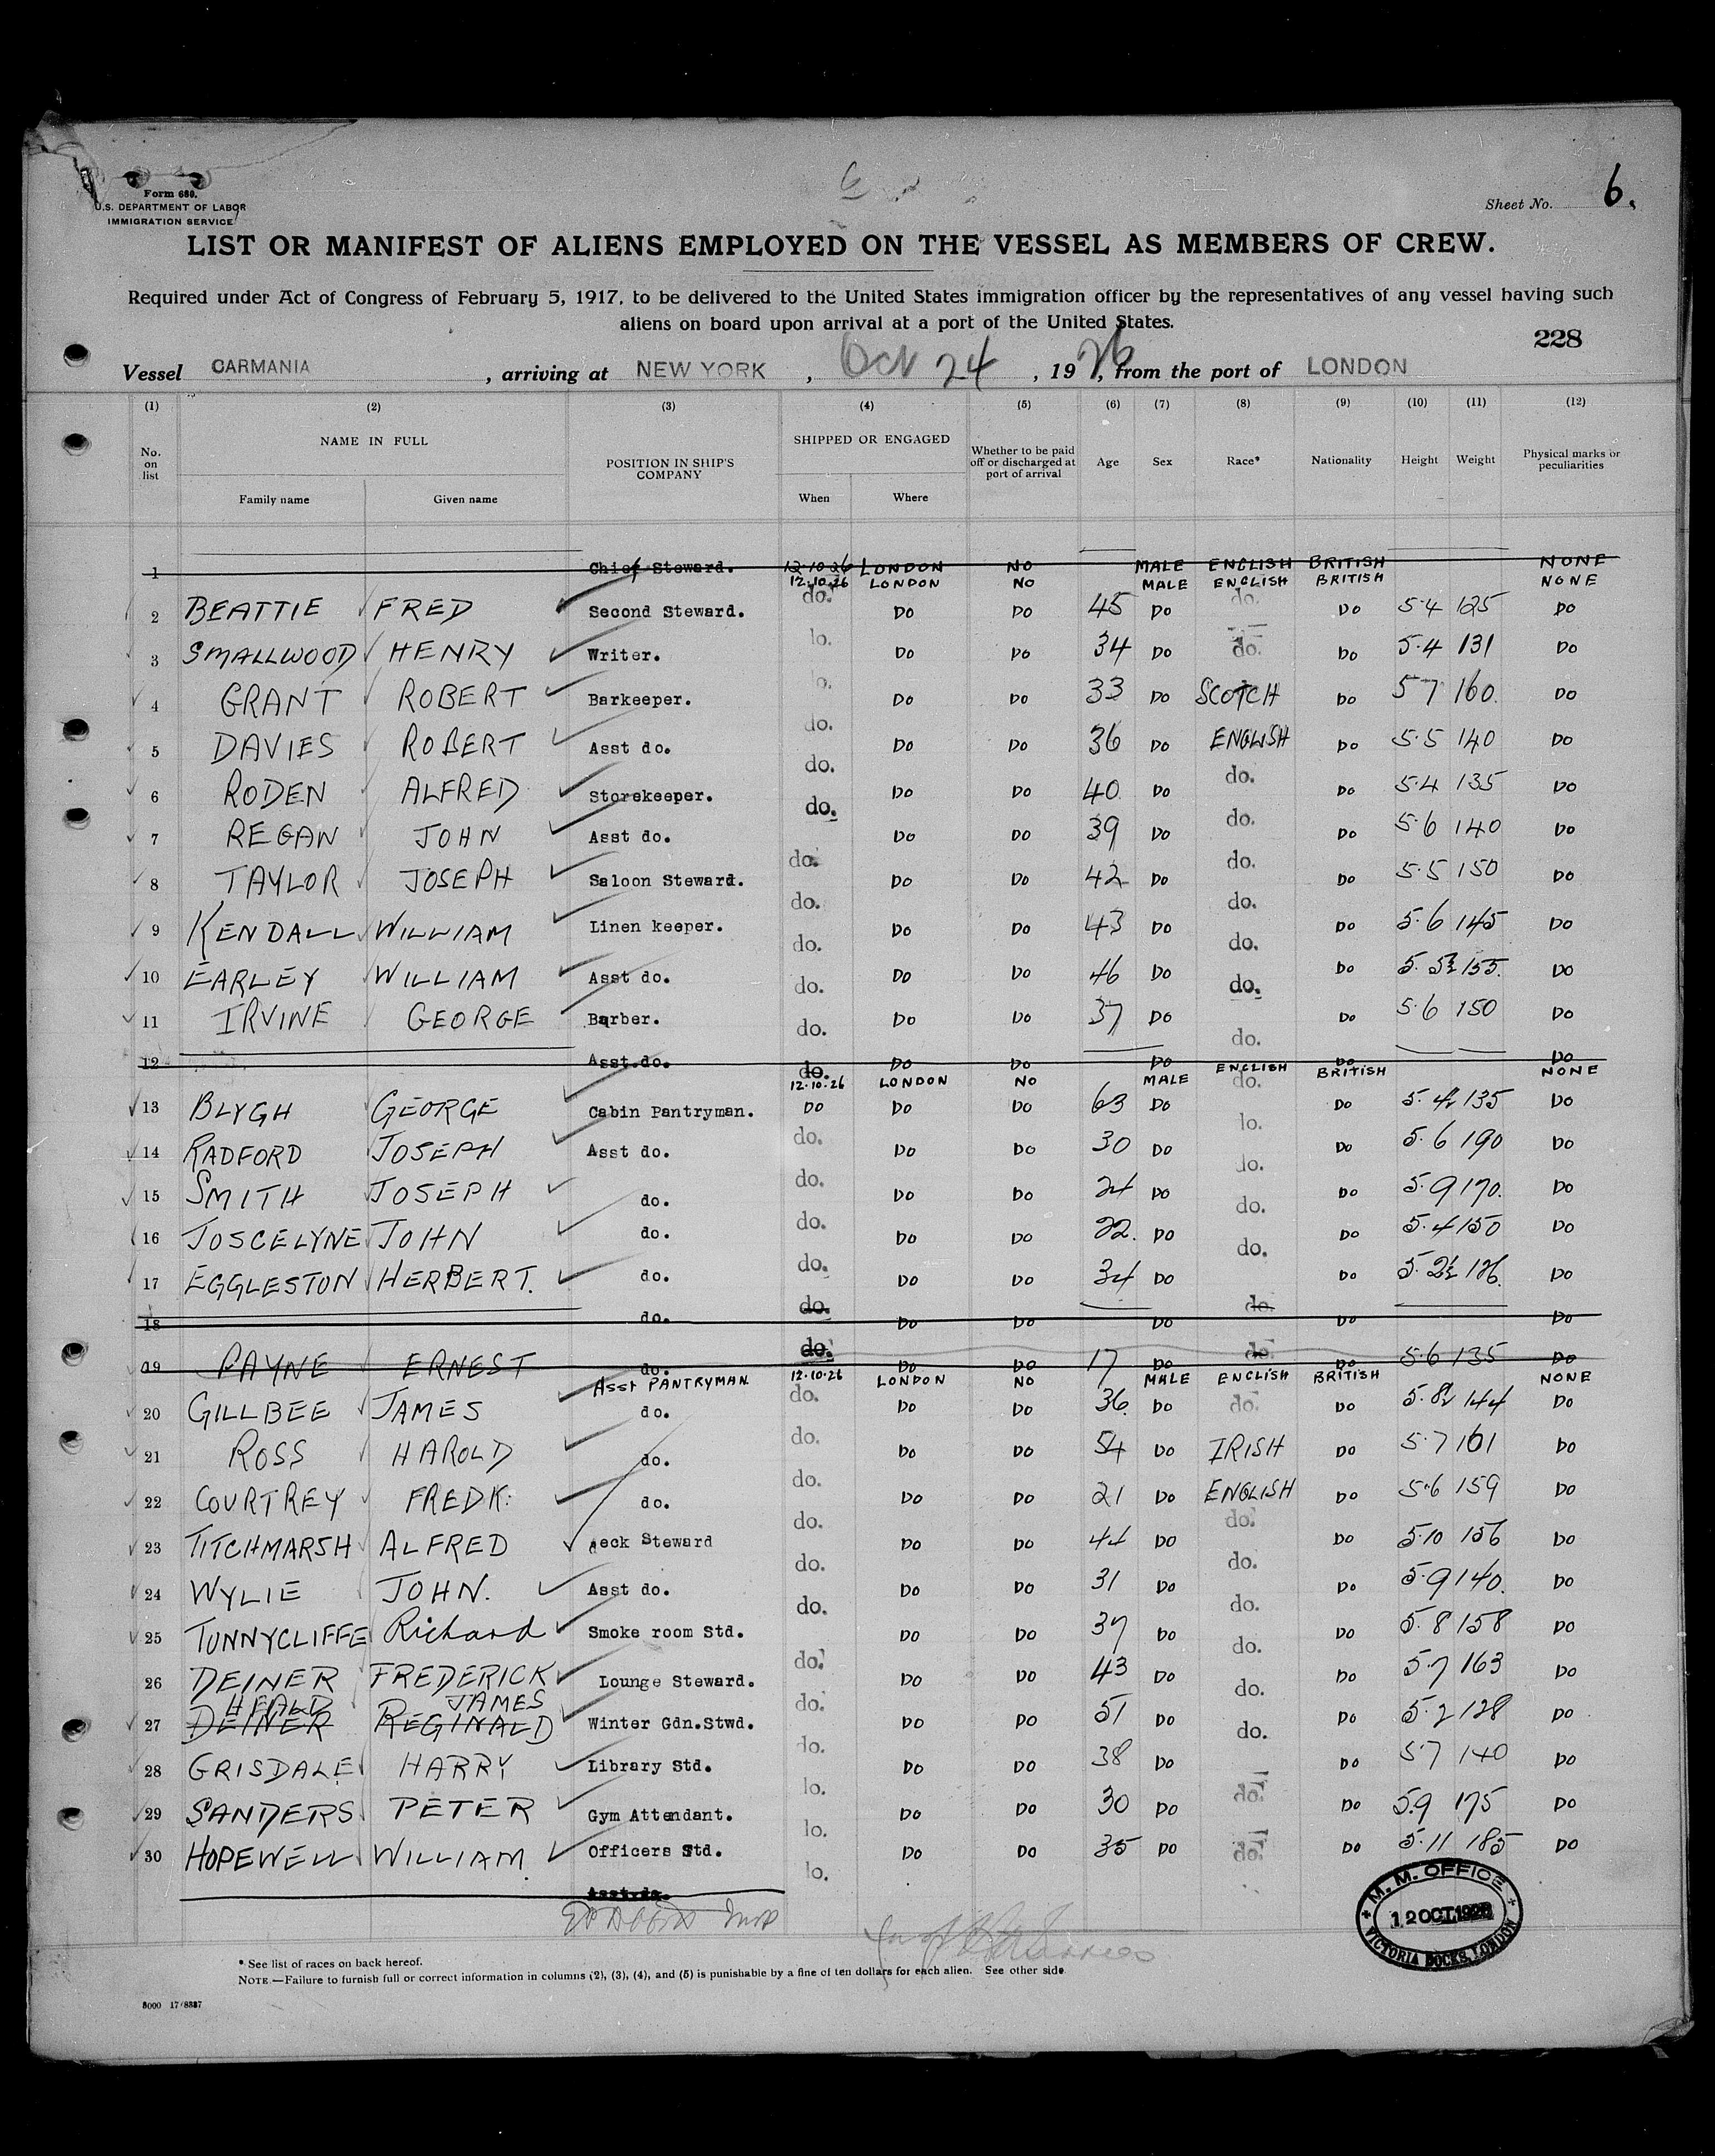 6
Form 680.
U.S. DEPARTMENT OF LABOR
IMMIGRATION SERVICE
Sheet No. 6.
LIST OR MANIFEST OF ALIENS EMPLOYED ON THE VESSEL AS MEMBERS OF CREW.
Required under Act of Congress of February 5, 1917, to be delivered to the United States immigration officer by the representatives of any vessel having such
aliens on board upon arrival at a port of the United States.
228
Vessel CARMANIA, arriving at NEW YORK, Oct 24, 1926, from the port of LONDON
(1) (2) (3) (4) (5) (6) (7) (8) (9) (10) (11) (12)
No. on list NAME IN FULL POSITION IN SHIP'S COMPANY SHIPPED OR ENGAGED Whether to be paid off or discharged at port of arrival Age Sex Race* Nationality Height Weight Physical marks or peculiarities
Family name Given name When Where
1 Chief Steward. 12.10.26 LONDON NO MALE ENGLISH BRITISH NONE
12.10.26 LONDON NO MALE ENGLISH BRITISH NONE
2 BEATTIE FRED Second Steward. do. DO DO 45 DO do. DO 5·4 125 DO
3 SMALLWOOD HENRY Writer. lo. DO DO 34 DO do. DO 5·4 131 DO
4 GRANT ROBERT Barkeeper. lo. DO DO 33 DO SCOTCH DO 5 7 160. DO
5 DAVIES ROBERT Asst do. do. DO DO 36 DO ENGLISH DO 5·5 140 DO
6 RODEN ALFRED Storekeeper. do. DO DO 40 DO do. DO 5·4 135 DO
7 REGAN JOHN Asst do. do. DO DO 39 DO do. DO 5·6 140 DO
8 TAYLOR JOSEPH Saloon Steward. do. DO DO 42 DO do. DO 5·5 150 DO
9 KENDALL WILLIAM Linen keeper. do. DO DO 43 DO do. DO 5·6 145 DO
10 EARLEY WILLIAM Asst do. do. DO DO 46 DO do. DO 5·5½ 155. DO
11 IRVINE GEORGE Barber. do. DO DO 37 DO do. DO 5·6 150 DO
12 Asst.do. do. DO DO DO do. DO DO
12.10.26 LONDON NO MALE ENGLISH BRITISH NONE
13 BLYGH GEORGE Cabin Pantryman. DO DO DO 63 DO do. DO 5·4½ 135 DO
14 RADFORD JOSEPH Asst do. do. DO DO 30 DO lo. DO 5·6 190 DO
15 SMITH JOSEPH do. do. DO DO 24 DO do. DO 5·9 170. DO
16 JOSCELYNE JOHN do. do. DO DO 22. DO do. DO 5·4 150 DO
17 EGGLESTON HERBERT. do. do. DO DO 34 DO do. DO 5·2½ 126. DO
18 do. do. DO DO DO do. DO DO
19 PAYNE ERNEST do. do. DO DO 17 DO do. DO 5·6 135 DO
Asst PANTRYMAN 12.10.26 LONDON NO MALE ENGLISH BRITISH NONE
20 GILLBEE JAMES do. do. DO DO 36. DO do. DO 5·8½ 144 DO
21 ROSS HAROLD do. do. DO DO 54 DO IRISH DO 5·7 161 DO
22 COURTREY FREDK: do. do. DO DO 21 DO ENGLISH DO 5·6 159 DO
23 TITCHMARSH ALFRED deck Steward do. DO DO 44 DO do. DO 5·10 156 DO
24 WYLIE JOHN. Asst do. do. DO DO 31 DO do. DO 5·9 140. DO
25 TUNNYCLIFFE Richard Smoke room Std. do. DO DO 37 DO do. DO 5·8 158 DO
26 DEINER FREDERICK Lounge Steward. do. DO DO 43 DO do. DO 5·7 163 DO
HEALD JAMES
27 DEINER REGINALD Winter Gdn.Stwd. do. DO DO 51 DO do. DO 5·2 128 DO
28 GRISDALE HARRY Library Std. lo. DO DO 38 DO DO 5·7 140 DO
29 SANDERS PETER Gym Attendant. lo. DO DO 30 DO do. DO 5.9 175 DO
30 HOPEWELL WILLIAM. Officers Std. lo. DO DO 35 DO do. DO 5·11 185 DO
Asst.do. lo.
M. M. OFFICE
12 OCT. 1926
VICTORIA DOCKS, LONDON
* See list of races on back hereof.
NOTE.—Failure to furnish full or correct information in columns (2), (3), (4), and (5) is punishable by a fine of ten dollars for each alien. See other side
5000 17/8337